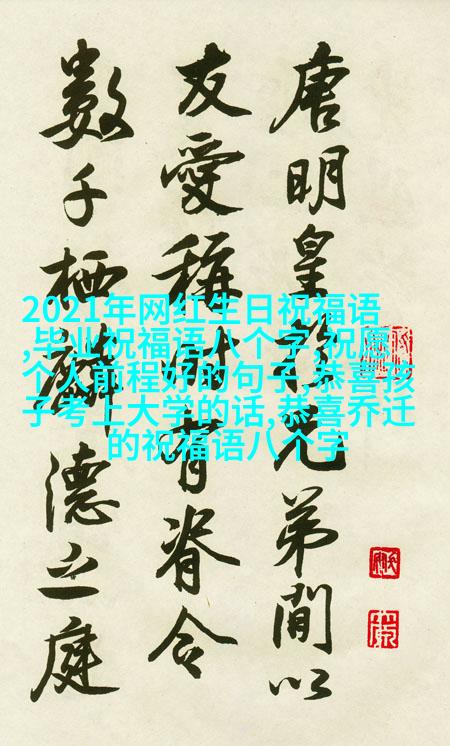 唐明皇於兄弟間以
友愛稱時有脊令
數千栖麟德之庭
2021年网红生日祝福语
,毕业祝福语八个字,祝愿
个人前程好的句子,恭喜孩
子考上大学的话,恭喜乔迁
的祝福语八个字